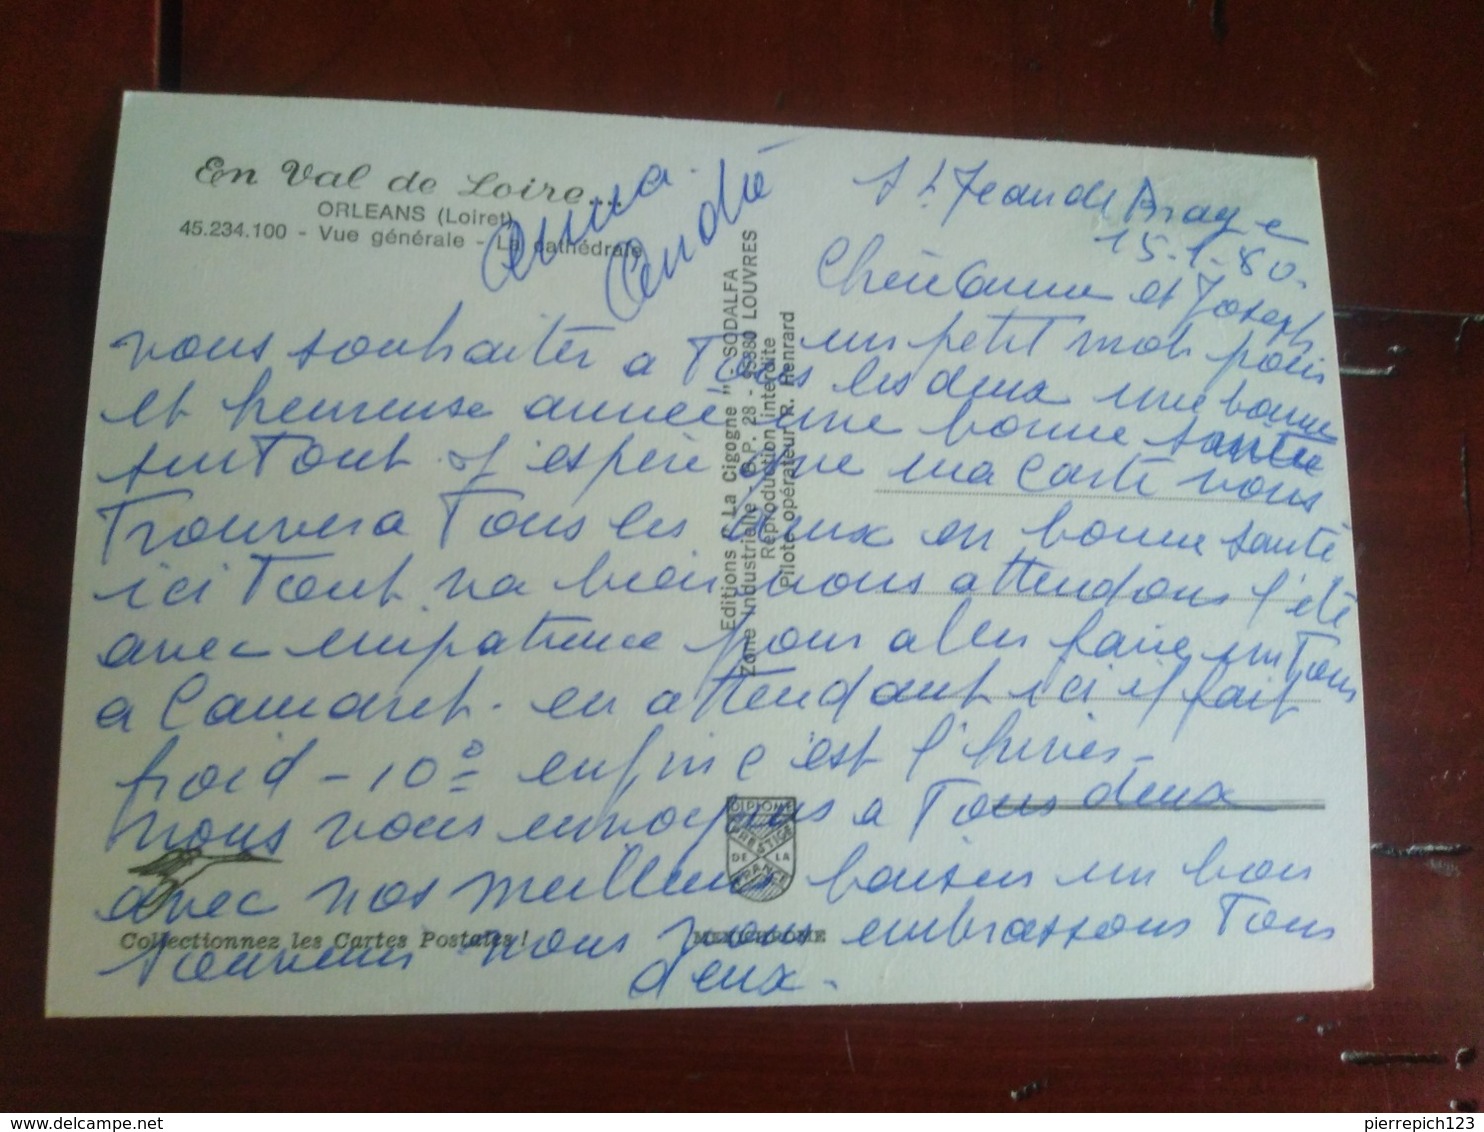 En Val de Loire...
ORLEANS (Loiret)
45.234.100 - Vue générale - La cathédrale
Anna
André
St Jean de Braye
15-1-80.
Chère Anna et Joseph
un petit mot pour
vous souhaiter a Tous les deux une bonne
et heureuse année, une bonne santée
surtout j'espère que ma carte vous
Trouvera Tous les deux en bonne santé
ici Tout va bien nous attendons l'été
avec impatience pour aller faire un Tour
a Camaret. en attendant ici il fait
froid - 10° enfin c'est l'hiver -
nous vous envoyons a Tous deux
avec nos meilleurs baisers un bon
souvenir nous vous embrassons Tous
deux.
Editions " La Cigogne " - SODALFA
Zone Industrielle - B.P. 28 - 95380 LOUVRES
Reproduction interdite
Pilote opérateur R. Henrard
DIPLOME
PRESTIGE
DE LA
FRANCE
Collectionnez les Cartes Postales !
MEXICHROME
pierrepich123